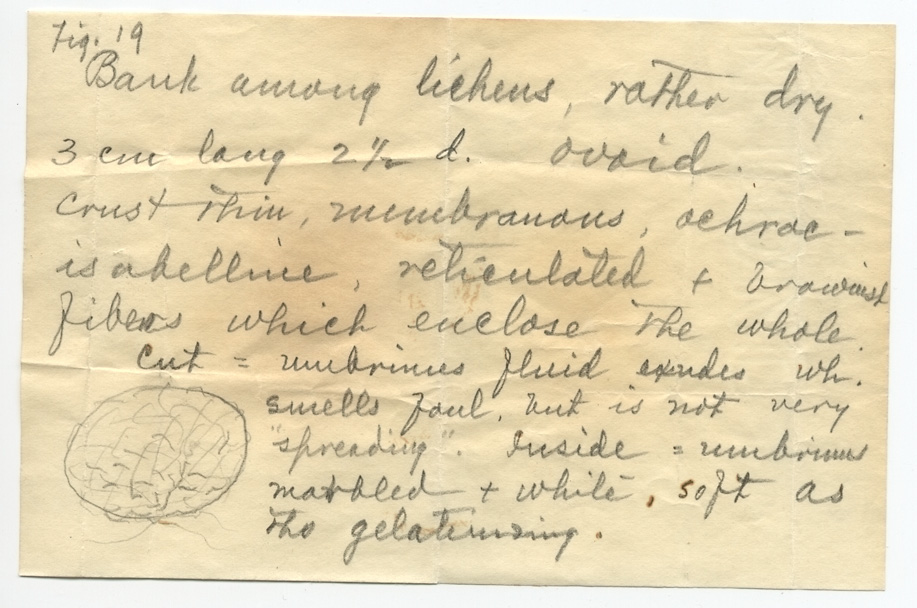 Fig. 19
Bank among lichens, rather dry.
3 cm long 2½ d. ovoid.
Crust thin, membranous, ochrac-
isabelline, reticulated + brownish
fibers which enclose the whole.
Cut = umbrinus fluid exudes wh.
smells foul, but is not very
"spreading". Inside = umbrinus
marbled + white, soft as
tho gelatinizing.